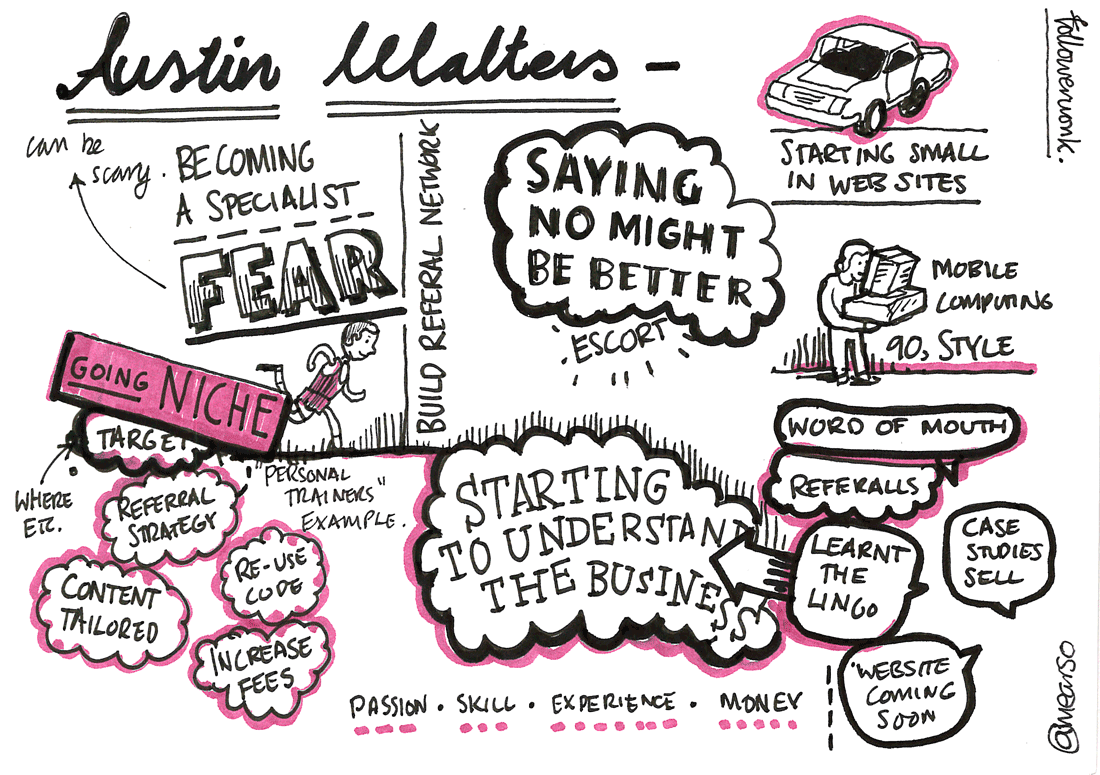 Austin Walters –
followerwonk.
can be
scary.
BECOMING
A SPECIALIST
FEAR
BUILD REFERRAL NETWORK
SAYING
NO MIGHT
BE BETTER
ESCORT
STARTING SMALL
IN WEB SITES
MOBILE
COMPUTING
90s STYLE
GOING NICHE
TARGET
WHERE
ETC.
"PERSONAL
TRAINERS"
EXAMPLE.
REFERRAL
STRATEGY
RE-USE
CODE
CONTENT
TAILORED
INCREASE
FEES
STARTING
TO UNDERSTAND
THE BUSINESS
WORD OF MOUTH
REFERALLS
LEARNT
THE
LINGO
CASE
STUDIES
SELL
"WEBSITE
COMING
SOON
PASSION • SKILL • EXPERIENCE • MONEY
@wearso